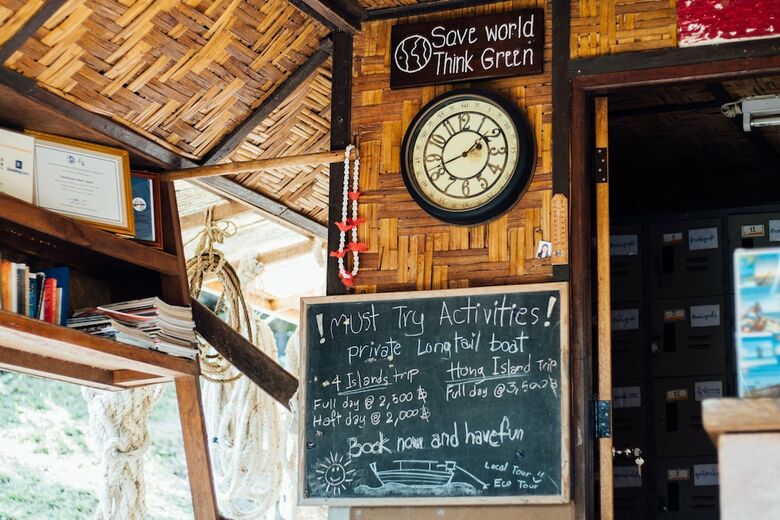 Save world
Think Green
12
1
2
3
4
5
6
7
8
9
10
11
! Must Try Activities!
private Longtail boat
4 Islands trip
Full day @ 2,500 ฿
Haft day @ 2,000 ฿
Hong Island Trip
Full day @ 3,500 ฿
Book now and have fun
Local Tour
Eco Tour